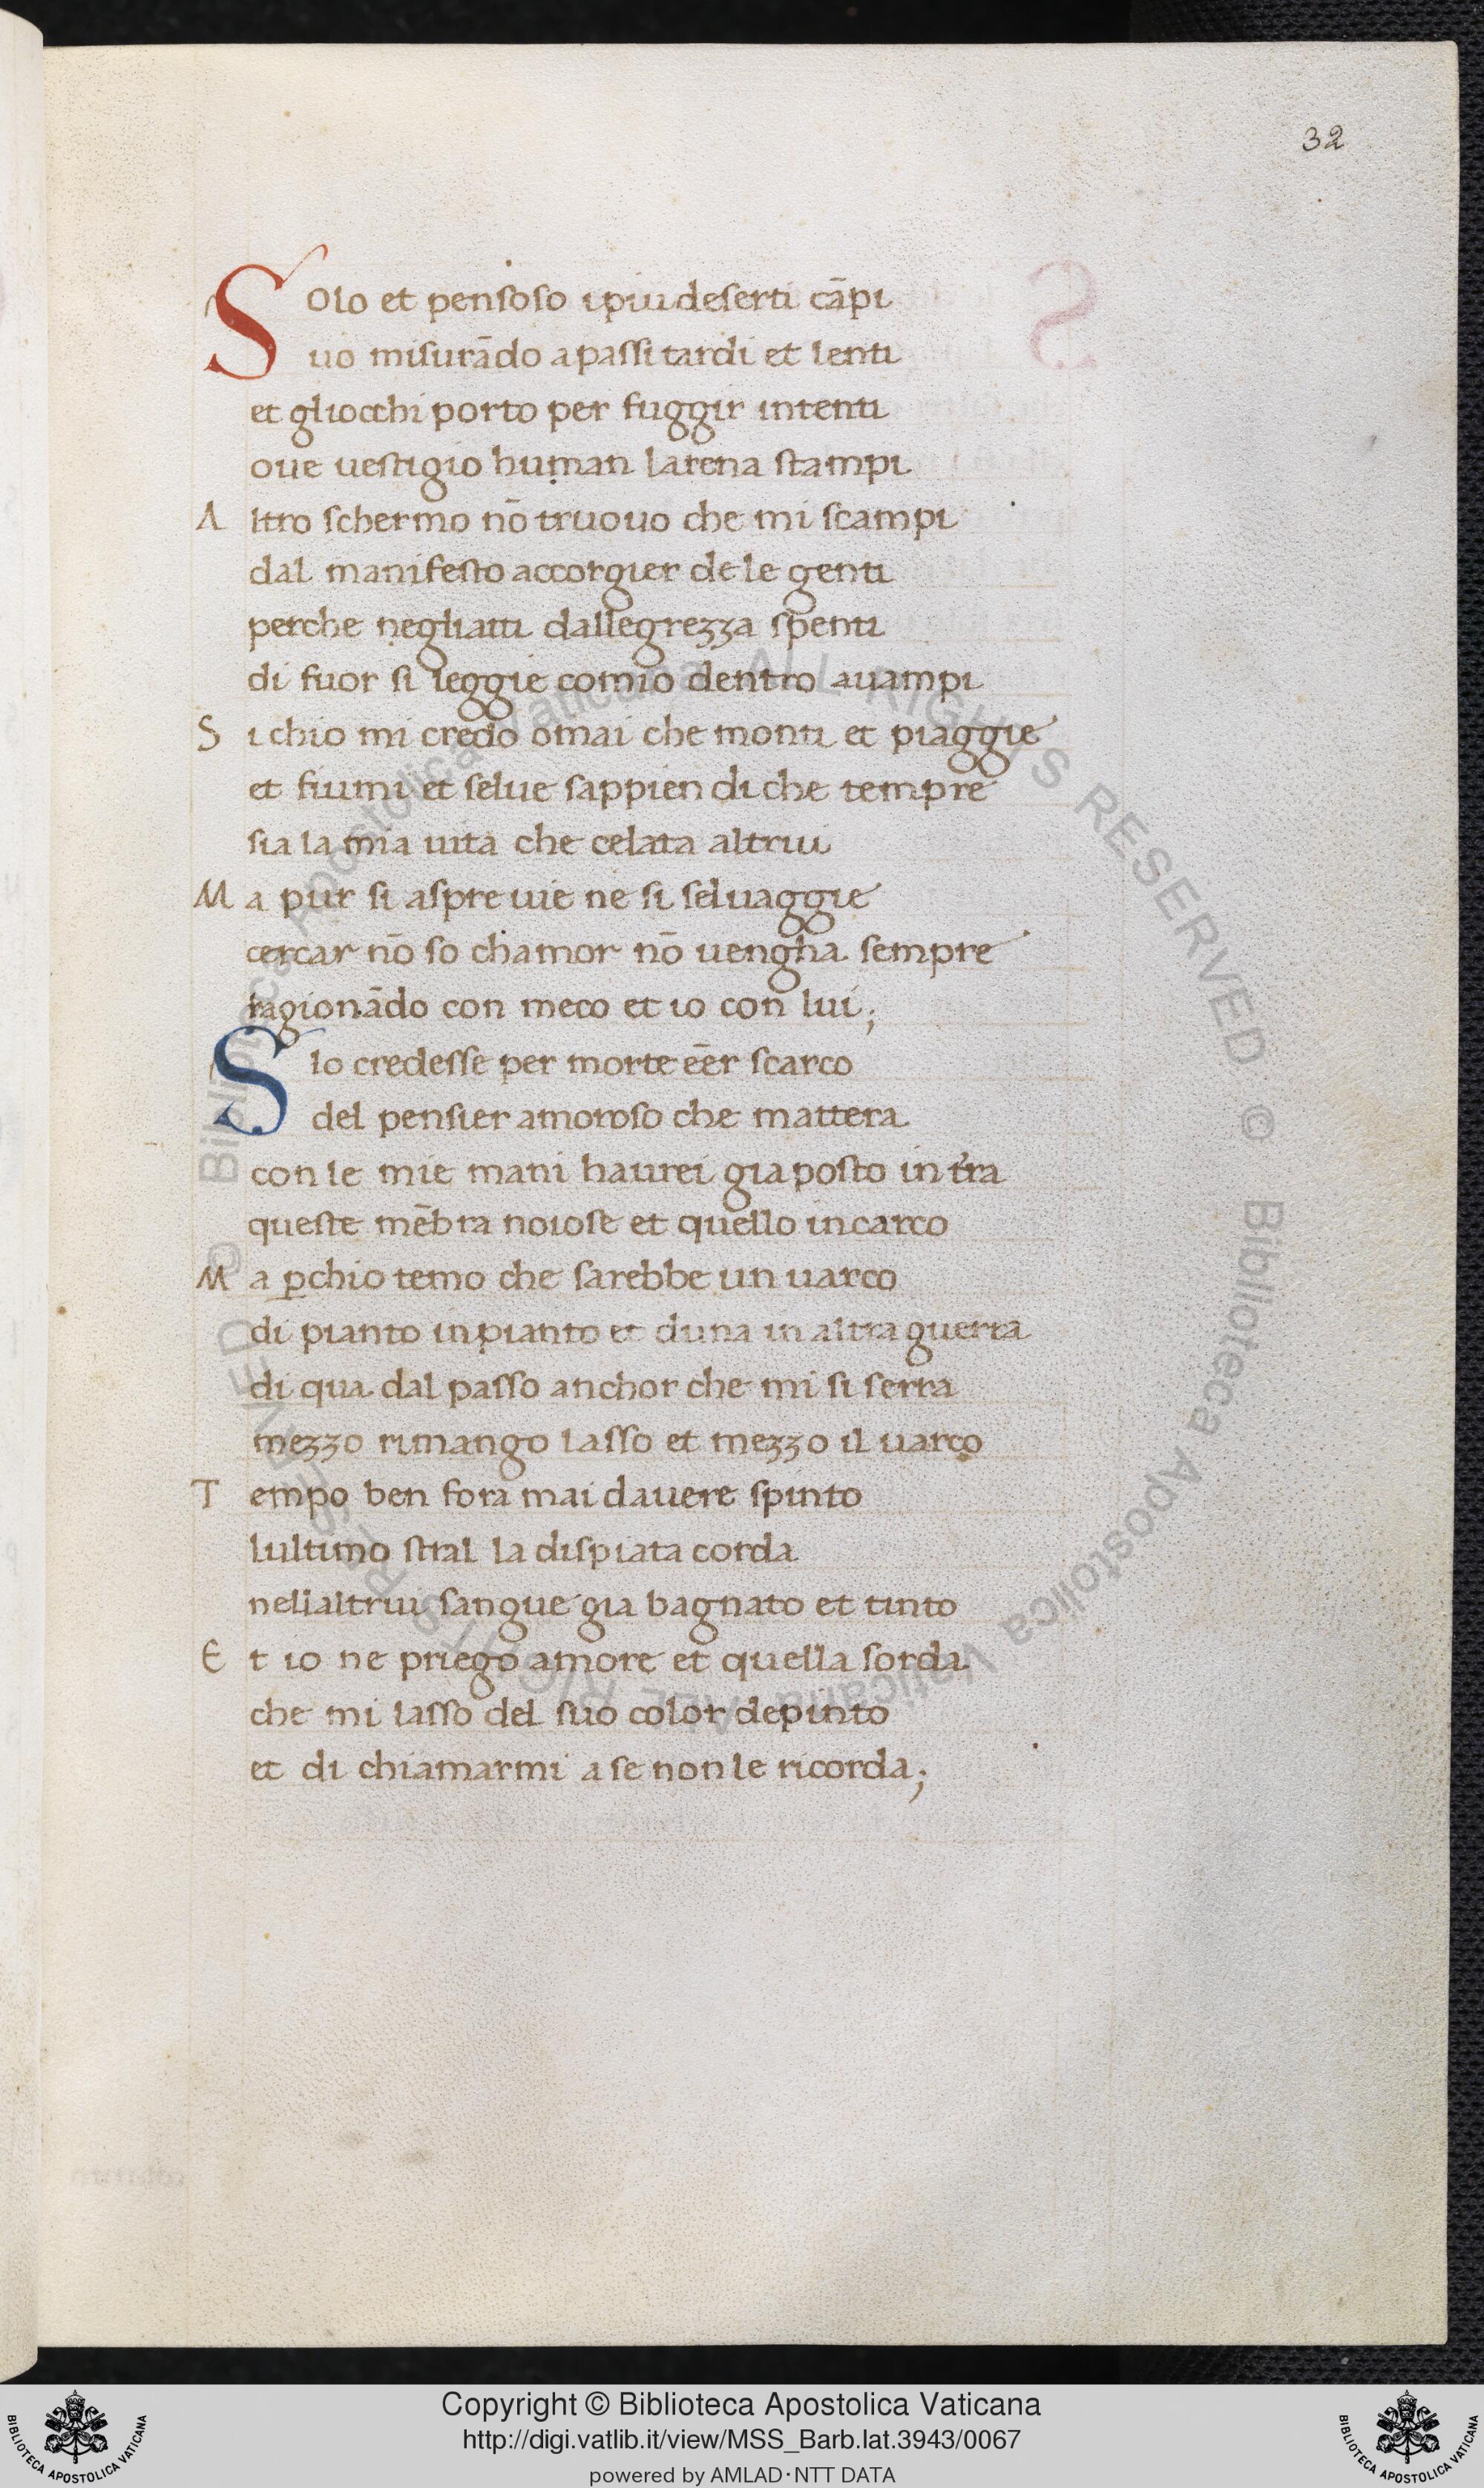 32
Solo et pensoso ipiu deserti cāpi
uo misurādo a passi tardi et lenti
et gliocchi porto per fuggir intenti
oue uestigio human larena stampi
Altro schermo nō truouo che mi scampi
dal manifesto accorgier de le genti
perche negliatti dallegrezza spenti
di fuor si leggie comio dentro auampi
Si chio mi credo omai che monti et piaggie
et fiumi et selue sappien di che tempre
sia la mia uita che celata altrui
Ma pur si aspre uie ne si seluaggie
cercar nō so chamor nō uengha sempre
ragionādo con meco et io con lui;
Sio credesse per morte eēr scarco
del pensier amoroso che mattera
con le mie mani haurei gia posto in tr̄a
queste mēbra noiose et quello incarco
Ma ꝑchio temo che sarebbe un uarco
di pianto in pianto et duna in altra guerra
di qua dal passo anchor che mi si serra
mezzo rimango lasso et mezzo il uarco
Tempo ben fora mai dauere spinto
lultimo stral la dispiata corda
nellaltrui sangue gia bagnato et tinto
Et io ne priego amore et quella sorda
che mi lasso del suo color depinto
et di chiamarmi a se non le ricorda;
© Biblioteca Apostolica Vaticana ALL RIGHTS RESERVED
© Biblioteca Apostolica Vaticana ALL RIGHTS RESERVED
BIBLIOTECA APOSTOLICA VATICANA
Copyright © Biblioteca Apostolica Vaticana
http://digi.vatlib.it/view/MSS_Barb.lat.3943/0067
powered by AMLAD·NTT DATA
BIBLIOTECA APOSTOLICA VATICANA